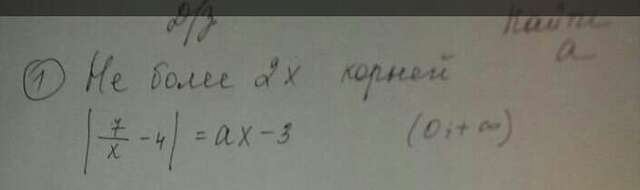 Д/з
Найти
a
① Не более 2х корней
|7/x - 4| = ax - 3 (0; + ∞)